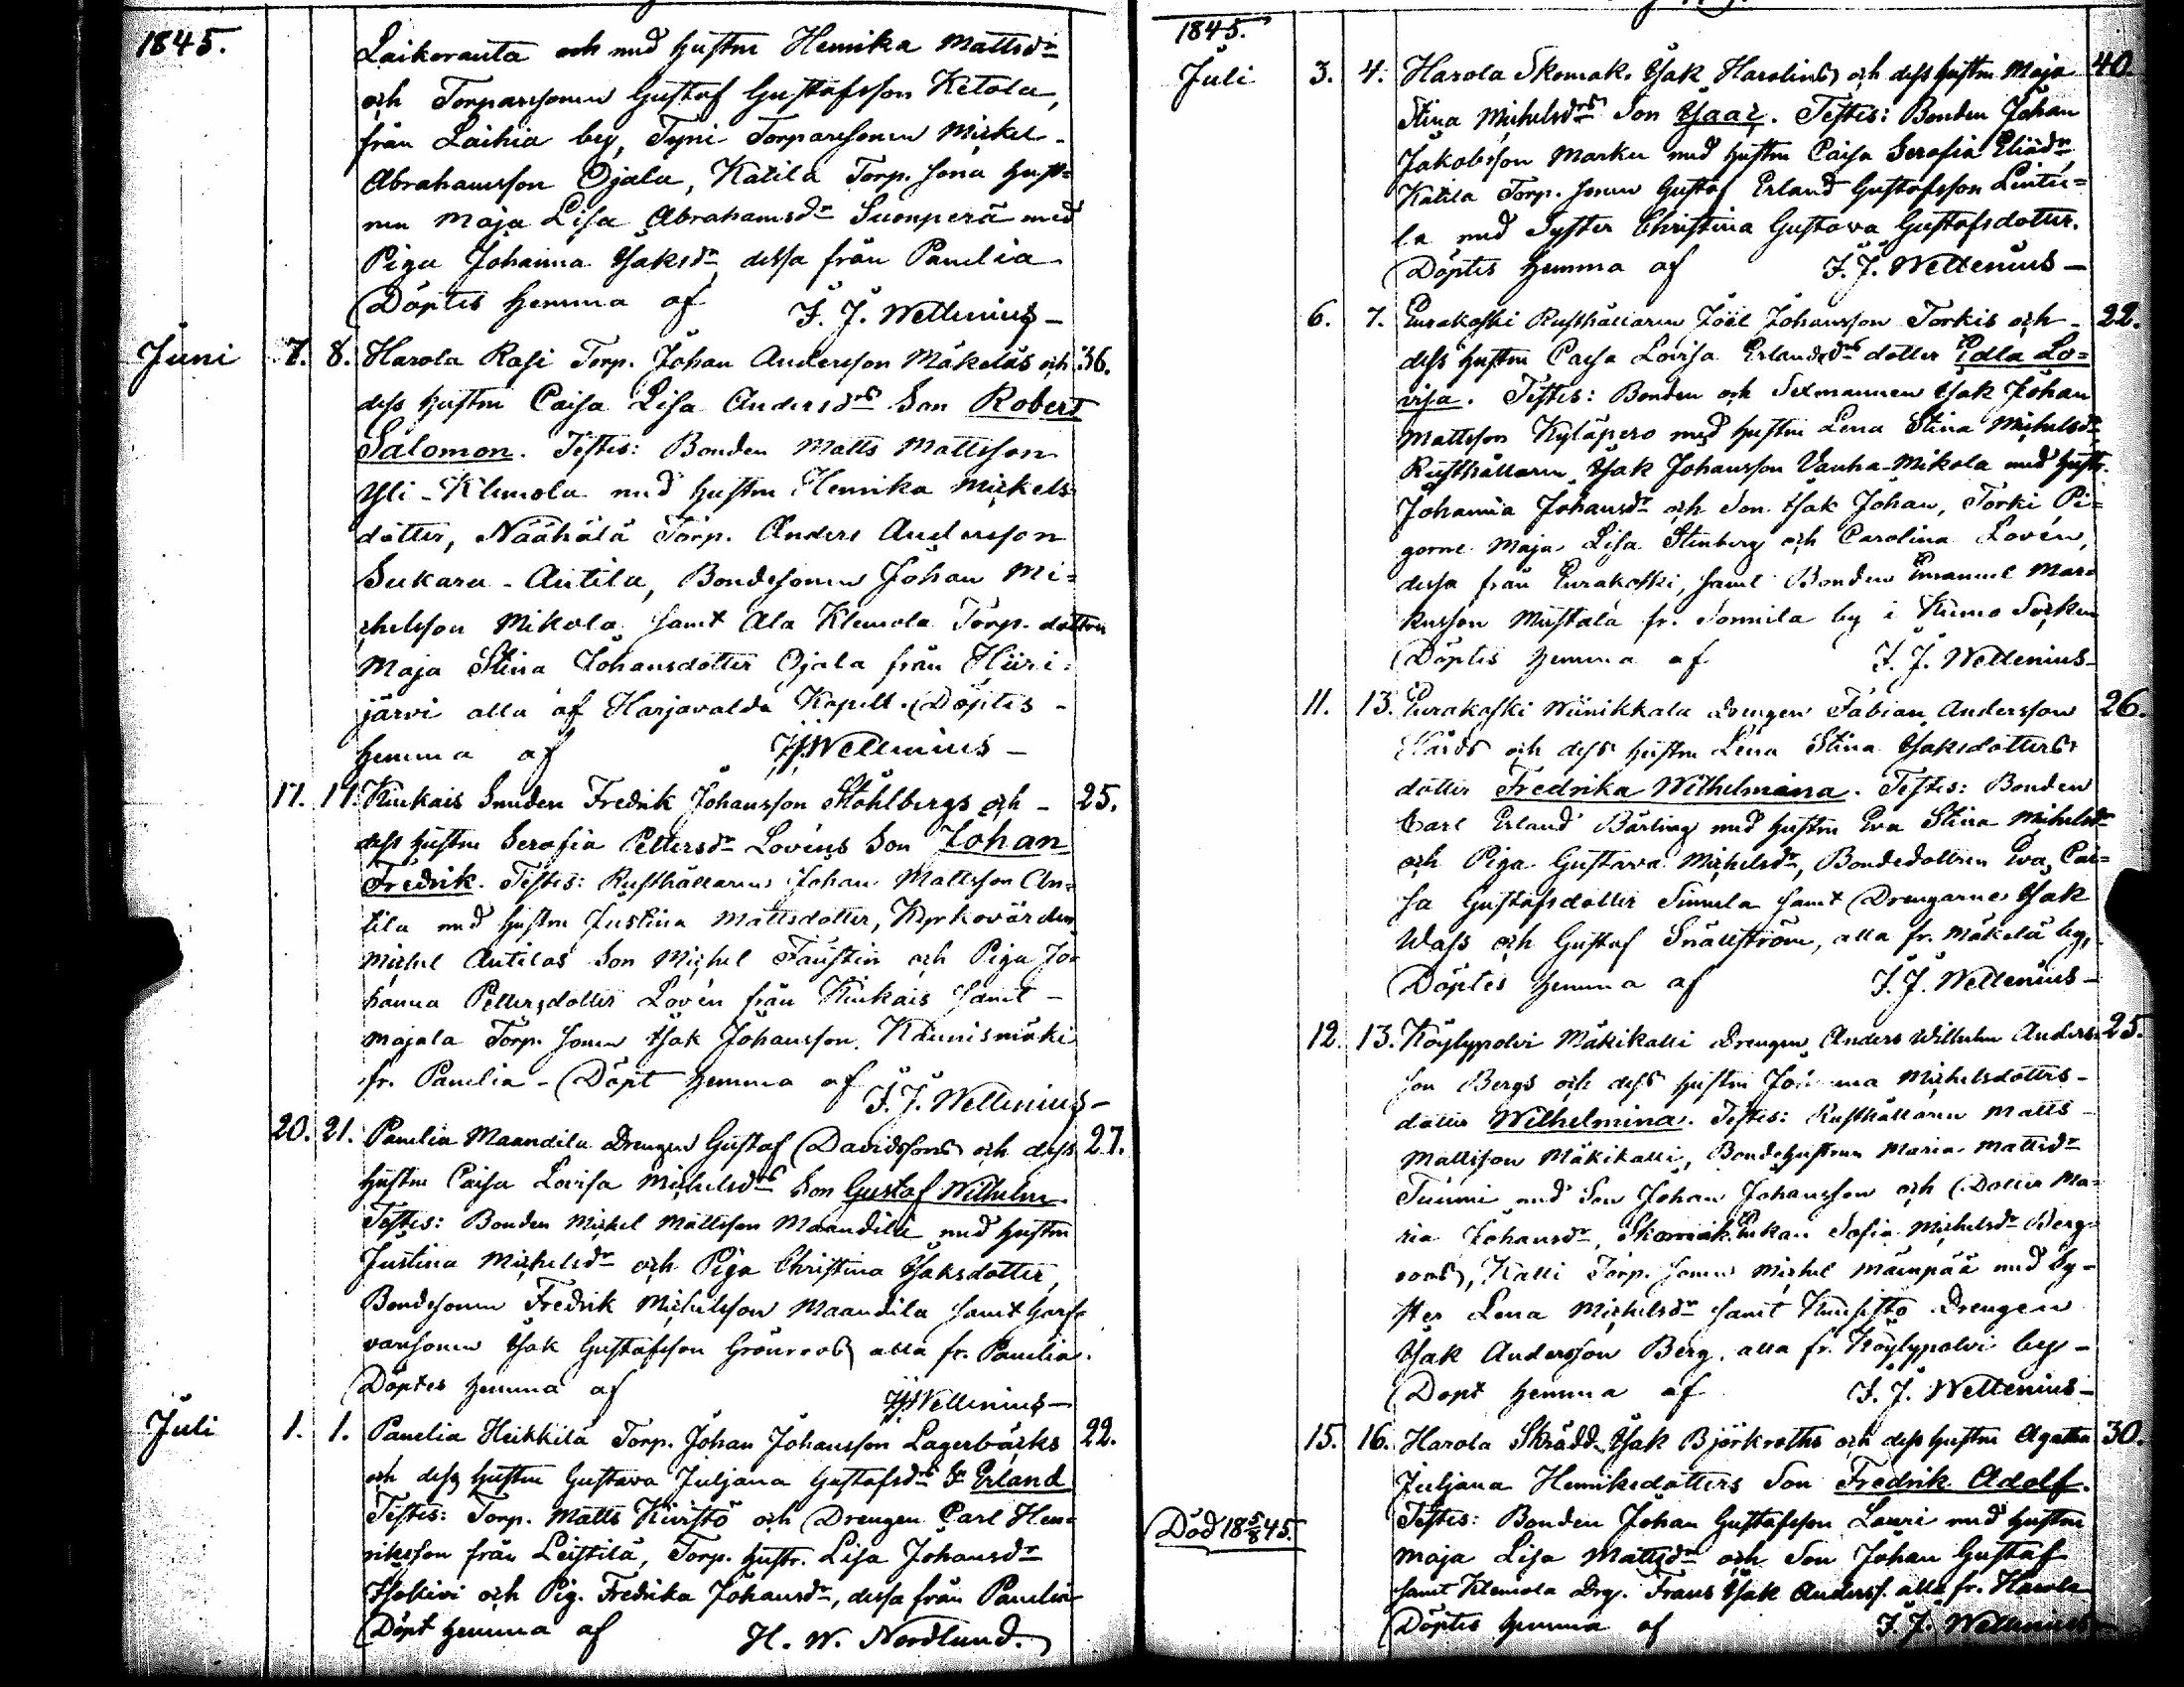 1845.
Laikorauta och med hustru Henrika Mattsdr
och Torparesonen Gustaf Gustafsson Ketola,
från Laihia by, Tyni Torparesonen Mickel
Abrahamsson Ojala, Katila Torp. sons hust=
run Maja Lisa Abrahamsdr Suonperä med
Piga Johanna Isaksdr dessa från Panelia
Döptes hemma af F. J. Wellenius
Juni 7. 8. Harola Rasi Torp. Johan Andersson Mäkeläs och 36.
dess hustru Caisa Lisa Andersdrs Son Robert
Salomon. Testes: Bonden Matts Mattsson
Yli-Klemola med hustru Henrika Mickels
dotter, Näähälä Torp. Anders Andersson
Sukara-Antila, Bondesonen Johan Mi=
chelsson Mikola samt Ala Klemola Torp. dottren
Maja Stina Johansdotter Ojala från Hiiri=
järvi alla af Harjavalda Kapell. Döptes
hemma af F. J. Wellenius
17. 17. Kiukais Smeden Fredrik Johansson Ståhlbergs och 25.
dess hustru Serafia Pettersdr Lovéns Son Johan
Fredrik. Testes: Rusthållaren Johan Mattsson An=
tila med hustru Justina Mattsdotter, Kyrkovärden
Michel Antilas Son Michel Faustin och Piga Jo=
hanna Pettersdotter Lovén från Kiukais samt
Majala Torp. sonen Isak Johansson Kaunismäki
fr. Panelia - Döpt hemma af F. J. Wellenius
20. 21. Panelia Maandila Drengen Gustaf Davidssons och dess 27.
hustru Caisa Lovisa Michelsdrs Son Gustaf Wilhelm
Testes: Bonden Mickel Mattsson Maandila med hustru
Justina Michelsdr och Piga Christina Isaksdotter,
Bondesonen Fredrik Michelsson Maandila samt Garf=
varesonen Isak Gustafsson Grönroos alla fr. Panelia.
Döptes hemma af F. J. Wellenius
Juli 1. 1. Panelia Heikkilä Torp. Johan Johansson Lagerbäcks 22.
och dess hustru Gustava Juljana Gustafsdrs Sn Erland
Testes: Torp. Matts Kivistö och Drengen Carl Hen=
riksson från Leistilä, Torp. hustr. Lisa Johansdr
Isokivi och Pig. Fredrika Johansdr, dessa från Panelia
Döpt hemma af H. W. Nordlund.
1845.
Juli 3. 4. Harola Skomak. Isak Harolins och dess hustru Maja 40.
Stina Michelsdrs Son Isaac. Testes: Bonden Johan
Jakobsson Marku med hustru Caisa Serafia Eliædr
Katila Torp. sonen Gustaf Erland Gustafsson Lintu=
la med Syster Christina Gustava Gustafsdotter.
Döptes hemma af F. J. Wellenius
6. 7. Eurakoski Rusthållaren Joël Johansson Torkis och 22.
dess hustru Caisa Lovisa Erlandsdrs dotter Edla Lo=
visa. Testes: Bonden och Sexmannen Isak Johan
Mattsson Kyläpero med hustru Lena Stina Michelsdr
Rusthållaren Isak Johansson Vanha-Mikola med hustr.
Johanna Johansdr och Son Isak Johan, Torki Pi=
gorne Maja Lisa Stenberg och Carolina Lovén,
dessa från Eurakoski, samt Bonden Emanuel Mar=
kusson Mustala fr. Sonnila by i Kumo Socken
Döptes hemma af F. J. Wellenius
11. 13. Eurakoski Wiinikkala Drengen Fabian Andersson 26.
Hårds och dess hustru Lena Stina Isaksdotters
dotter Fredrika Wilhelmina. Testes: Bonden
Carl Erland Bärling med hustru Eva Stina Michelsdr
och Piga Gustava Michelsdr, Bondedottren Eva Cai=
sa Gustafsdotter Simula samt Drengarne Isak
Wass och Gustaf Snällström, alla fr. Mäkelä by,
Döptes hemma af F. J. Wellenius
12. 13. Köylypolvi Mäkikalli Drengen Anders Wilhelm Anders= 25.
son Bergs och dess hustru Johanna Michelsdotters
dotter Wilhelmina. Testes: Rusthållaren Matts
Mattsson Mäkikalli, Bondehustrun Maria Mattsdr
Tuomi med Son Johan Johansson och Dotter Ma=
ria Johansdr, Skomak. Enkan Sofia Michelsdr Berg=
roos, Kalli Torp. sonen Michel Mäenpää med Sy=
ster Lena Michelsdr samt Kuusisto Drengen
Isak Andersson Berg, alla fr. Köylypolvi by
Döpt hemma af F. J. Wellenius
15. 16. Harola Skrädd. Isak Björkroths och dess hustru Agatha 30.
Juljana Henriksdotters Son Fredrik Adolf.
Död 18 5/8 45. Testes: Bonden Johan Gustafsson Lauri med hustru
Maja Lisa Mattsdr och Son Johan Gustaf
samt Klemola Drg. Frans Isak Anderss. alla fr. Harola
Döptes hemma af F. J. Wellenius